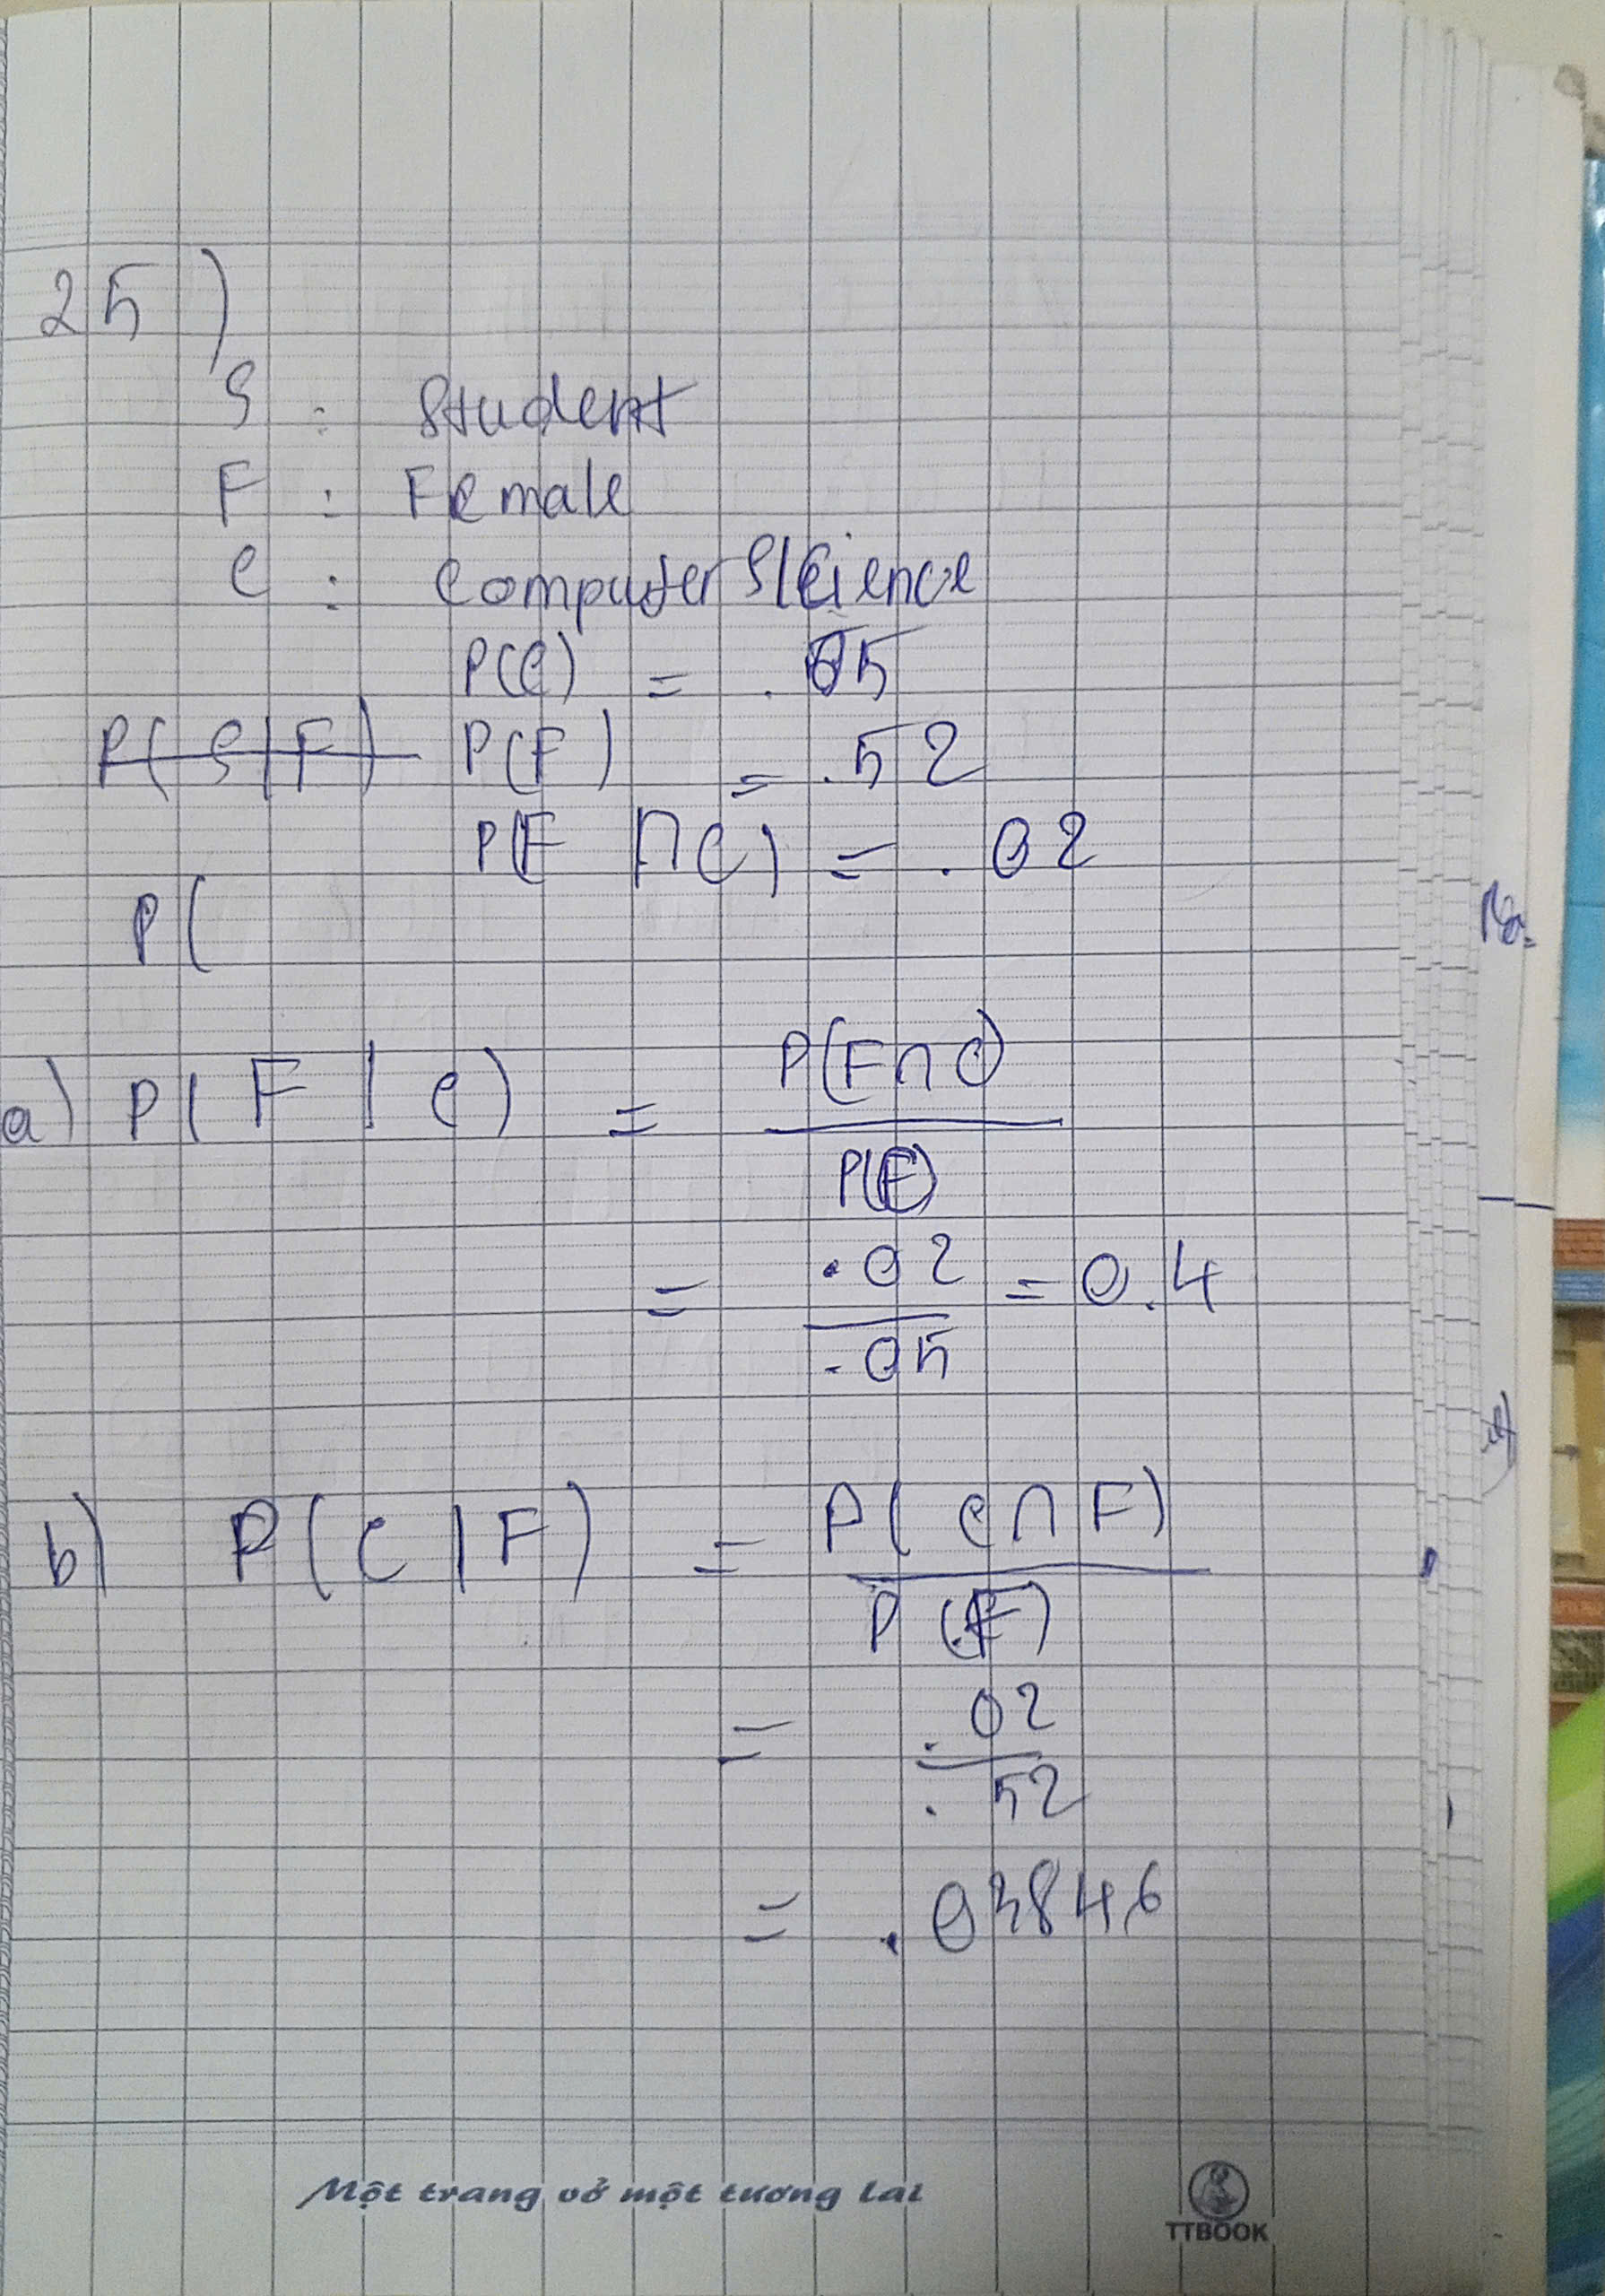 25)
S : Student
F : Female
C : Computer Science
P(C) = .05
P(S|F) P(F) = .52
P(F ∩ C) = .02
P(
a) P(F | C) = P(F ∩ C)
P(C)
= .02 = 0.4
.05
b) P(C | F) = P(C ∩ F)
P(F)
= .02
.52
= .03846
Một trang vở một tương lai
TTBOOK